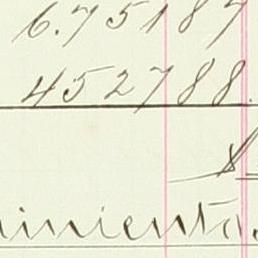 6.75187
452788.
$
inienta.